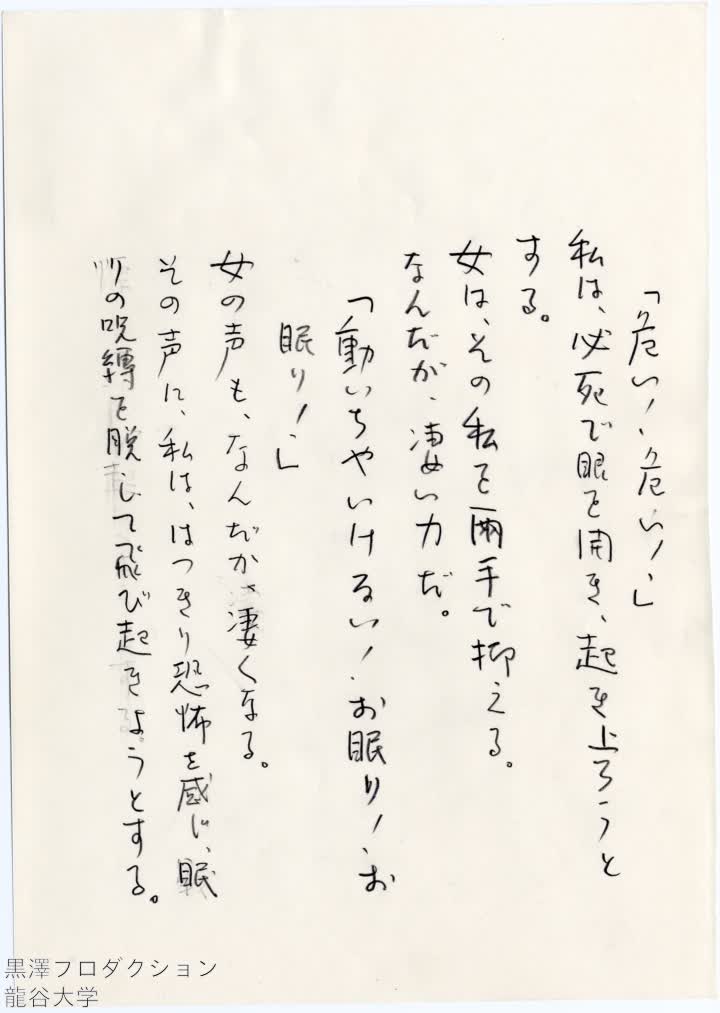 「危い！、危い！」
私は、必死で眼を開き、起き上ろうと
する。
女は、その私を両手で抑える。
なんだか、凄い力だ。
「動いちやいけない！、お眠り！、お
眠り！」
女の声も、なんだか、凄くなる。
その声に、私は、はつきり恐怖を感じ、眠
りの呪縛を脱して飛び起きようとする。
黒澤プロダクション
龍谷大学